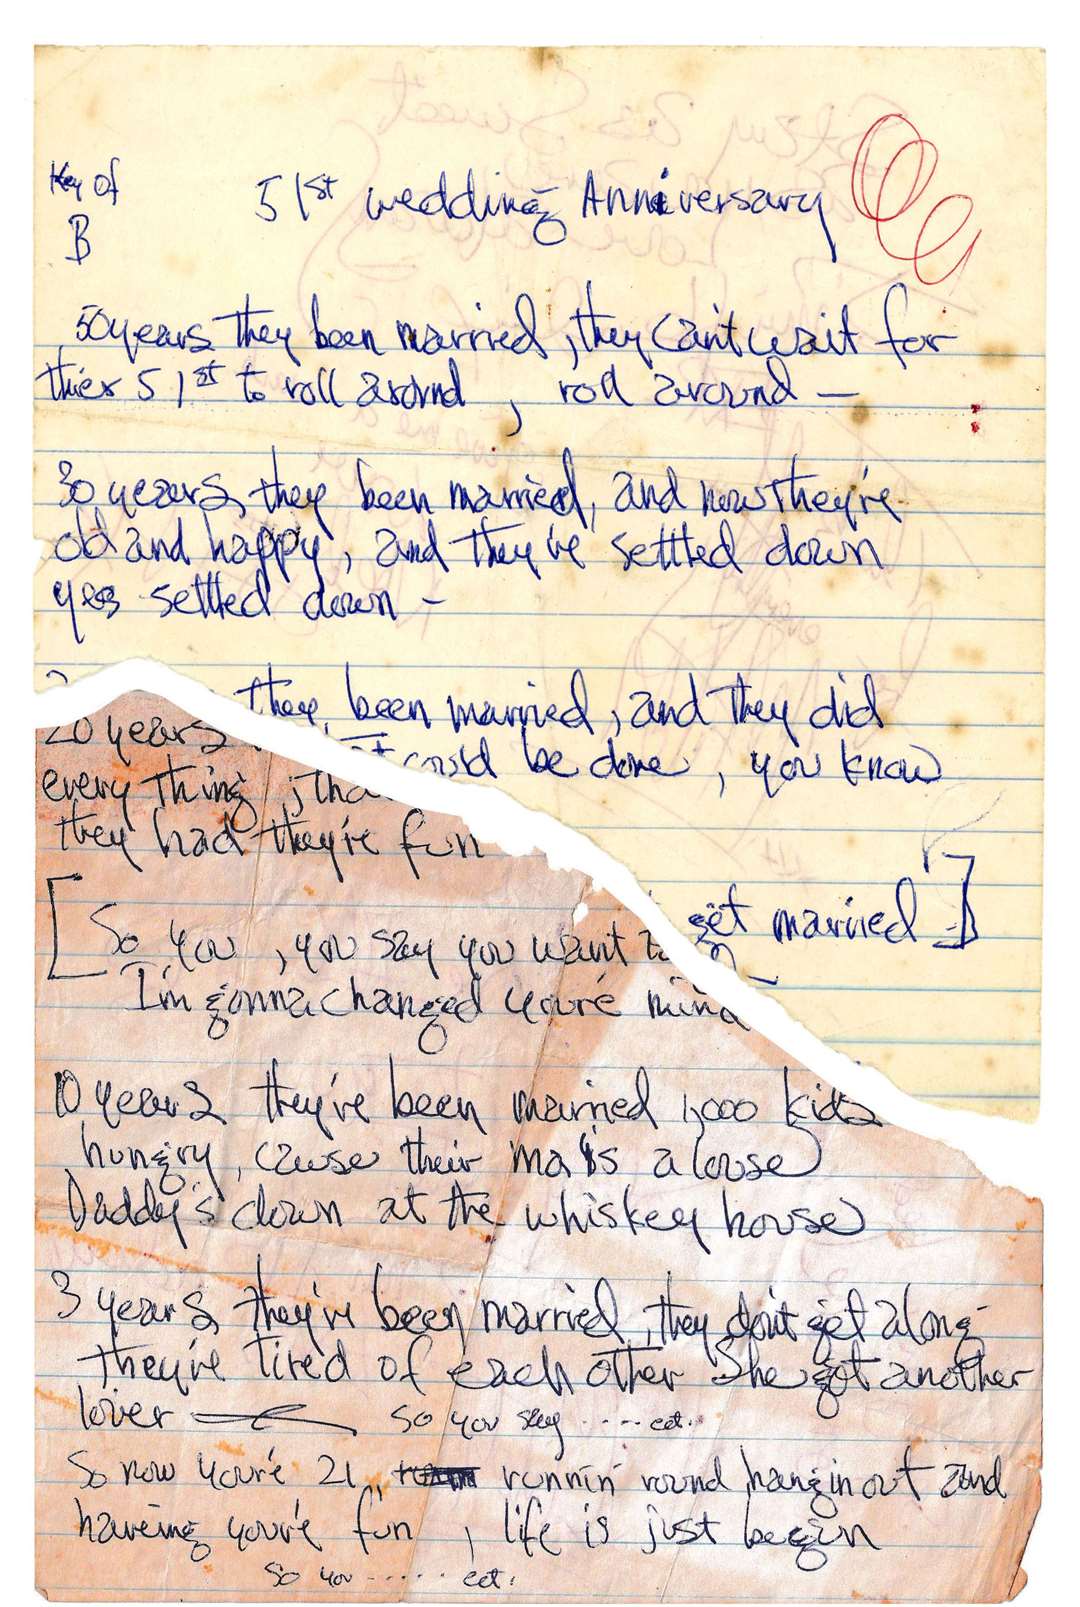 Key of
B
51st wedding Anniversary
50 years they been married, they can't wait for
thier 51st to roll around, roll around —
30 years they been married, and now they're
old and happy, and they've settled down
yes settled down –
they been married, and they did
20 years
could be done, you know
every thing, tha
they had they're fun
get married ]
[ So you, you say you want to
I'm gonna changed you're mind
10 years they've been married 1,000 kids
hungry, cause their ma is a louse
Daddy's down at the whiskey house
3 years they've been married, they don't get along
they're tired of each other She got another
lover — so you say ..... ect..
So now you're 21, runnin' round, hangin out and
haveing you're fun, life is just begin
So you ...... ect.